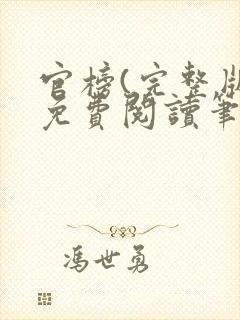 官榜(完整版
免費閱讀筆
馮世勇